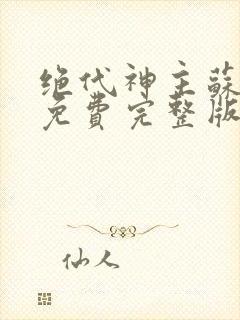 绝代神主蘇
免費完整版
仙人